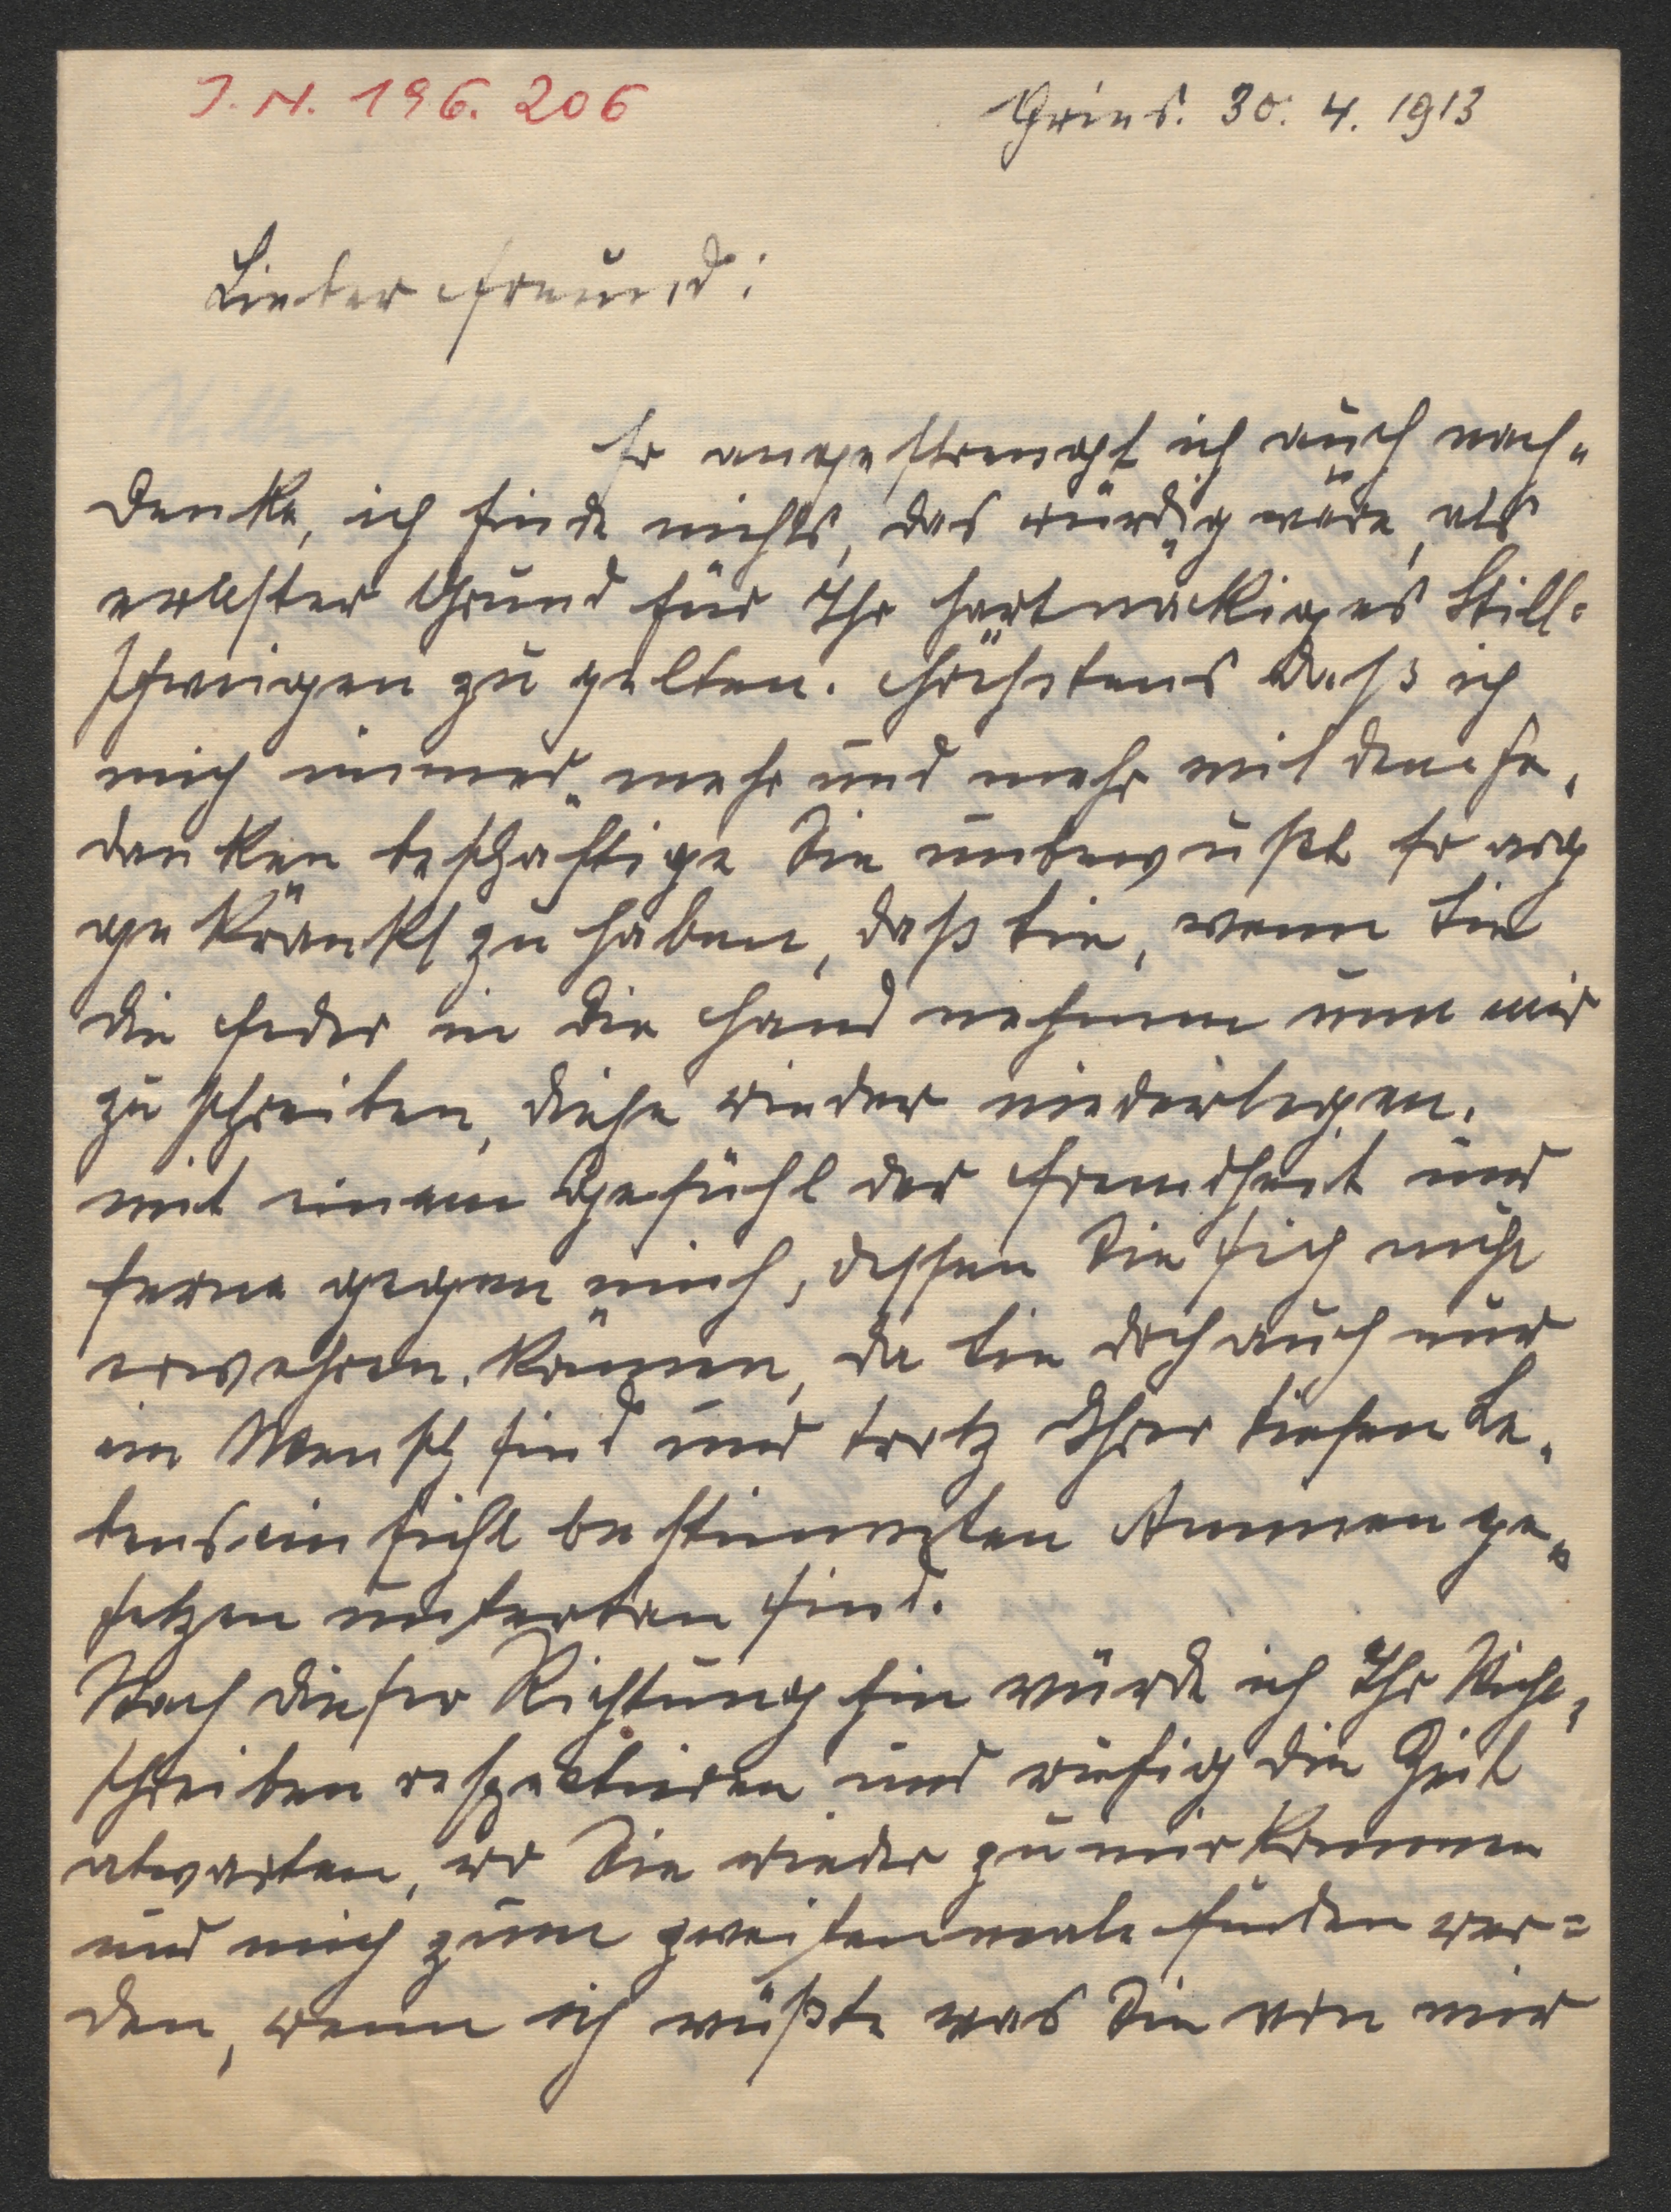 I. N. 196.206
Gries. 30. 4. 1913
Lieber Freund:
So angestrengt ich auch nach-
denke, ich finde nichts, das würdig wäre, als
erbster Grund für Ihr hartnäckiges Still-
schweigen zu gelten. Höchstens daß ich
mich immer mehr und mehr mit dem Ge-
danken beschäftige Sie unbewußt so arg
gekränkt zu haben, daß Sie, wenn Sie
die Feder in die Hand nehmen um mir
zu schreiben, diese wieder niederlegen.
mit einem Gefühl der Fremdheit und
Ferne gegen mich, dessen Sie sich nicht
erwehren können, da Sie doch auch nur
ein Mensch sind und trotz Ihrer tiefen Le-
benseinsicht bestimmten ge-
setzen unterthan sind.
Nach dieser Richtung hin würde ich Ihr Nicht-
schreiben respectieren und ruhig die Zeit
abwarten, wo Sie wieder zu mir kommen
und mich zum zweitenmale finden wer-
den, wenn ich wüßte was Sie von mir